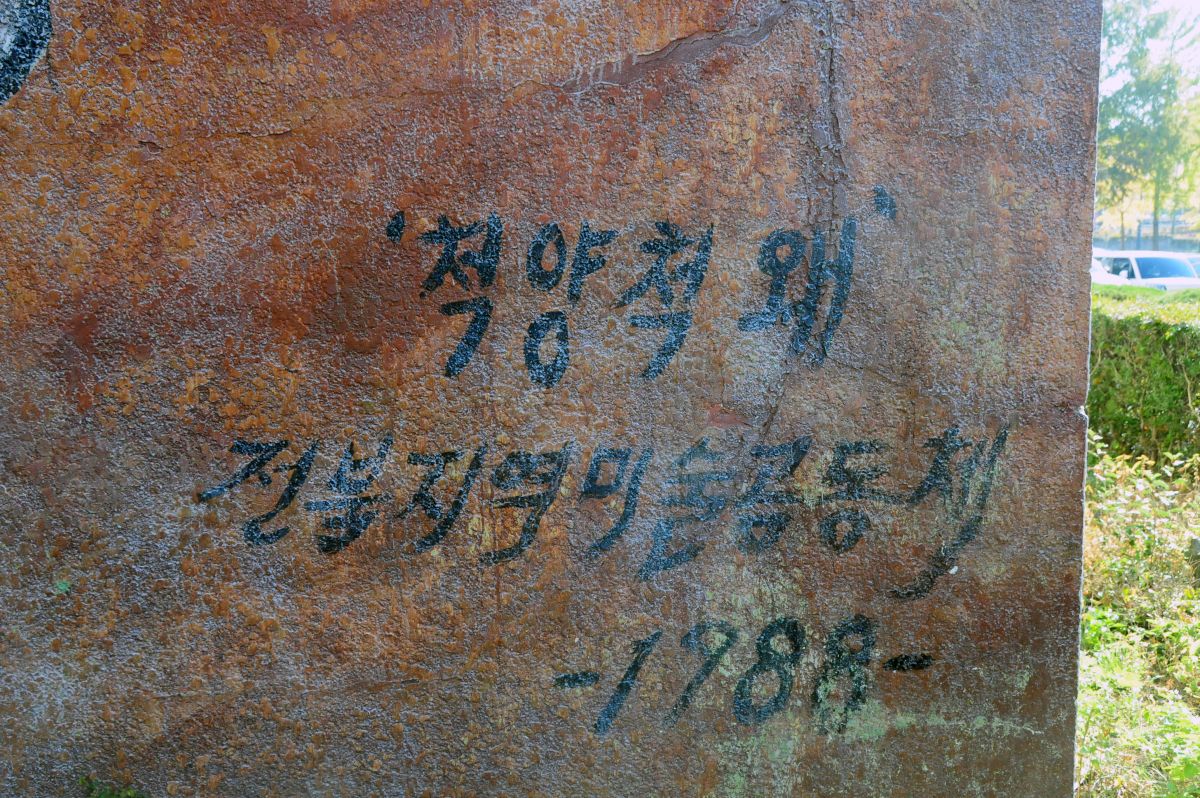 '척양척왜'
전북지역미술공동체
-1988-